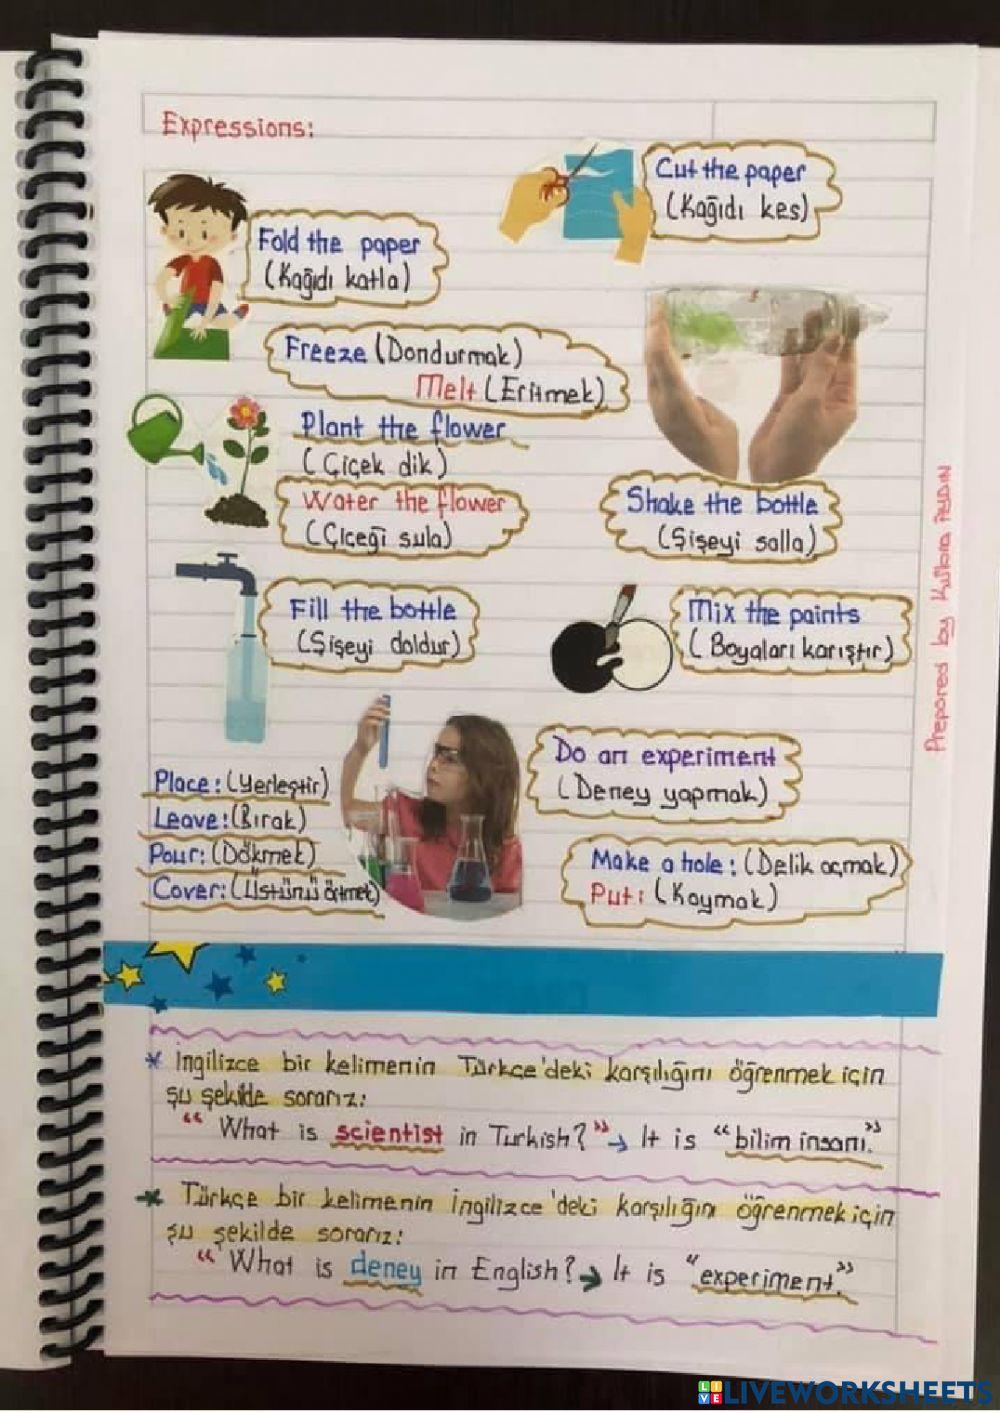 Expressions:
Cut the paper
(Kağıdı kes)
Fold the paper
(Kağıdı katla)
Freeze (Dondurmak)
Melt (Eritmek)
Plant the flower
(Çiçek dik)
Water the flower
(Çiçeği sula)
Shake the bottle
(Şişeyi salla)
Fill the bottle
(Şişeyi doldur)
Mix the paints
(Boyaları karıştır)
Do an experiment
(Deney yapmak)
Place: (Yerleştir)
Leave: (Bırak)
Pour: (Dökmek)
Cover: (Üstünü örtmek)
Make a hole: (Delik açmak)
Put: (Koymak)
Prepared by Kübra AYDIN
* İngilizce bir kelimenin Türkçe'deki karşılığını öğrenmek için
şu şekilde sorarız:
"What is scientist in Turkish?" → It is "bilim insanı."
* Türkçe bir kelimenin İngilizce'deki karşılığını öğrenmek için
şu şekilde sorarız:
"What is deney in English? → It is "experiment."
LIVEWORKSHEETS